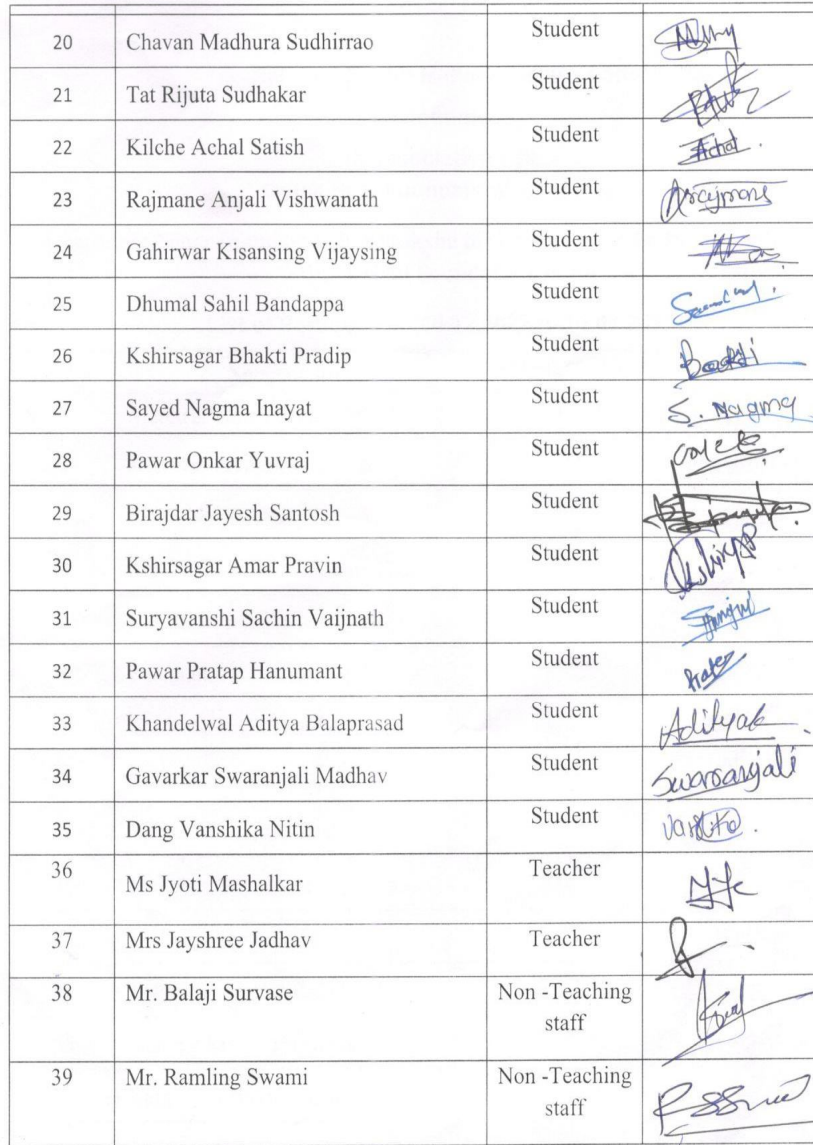 20 Chavan Madhura Sudhirrao Student
21 Tat Rijuta Sudhakar Student
22 Kilche Achal Satish Student Achal.
23 Rajmane Anjali Vishwanath Student
24 Gahirwar Kisansing Vijaysing Student
25 Dhumal Sahil Bandappa Student
26 Kshirsagar Bhakti Pradip Student
27 Sayed Nagma Inayat Student S. Nagma
28 Pawar Onkar Yuvraj Student
29 Birajdar Jayesh Santosh Student
30 Kshirsagar Amar Pravin Student
31 Suryavanshi Sachin Vaijnath Student
32 Pawar Pratap Hanumant Student
33 Khandelwal Aditya Balaprasad Student
34 Gavarkar Swaranjali Madhav Student Swaranjali
35 Dang Vanshika Nitin Student
36 Ms Jyoti Mashalkar Teacher
37 Mrs Jayshree Jadhav Teacher
38 Mr. Balaji Survase Non -Teaching
staff
39 Mr. Ramling Swami Non -Teaching
staff